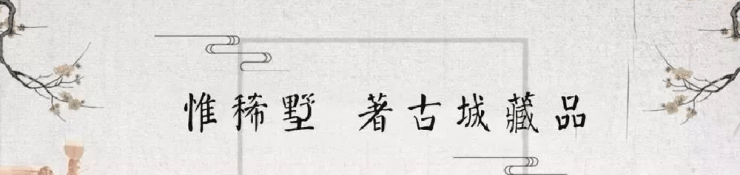 惟稀墅 著古城藏品